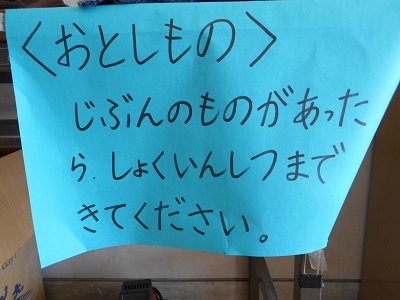 〈おとしもの〉
じぶんのものがあった
ら、しょくいんしつまで
きてください。